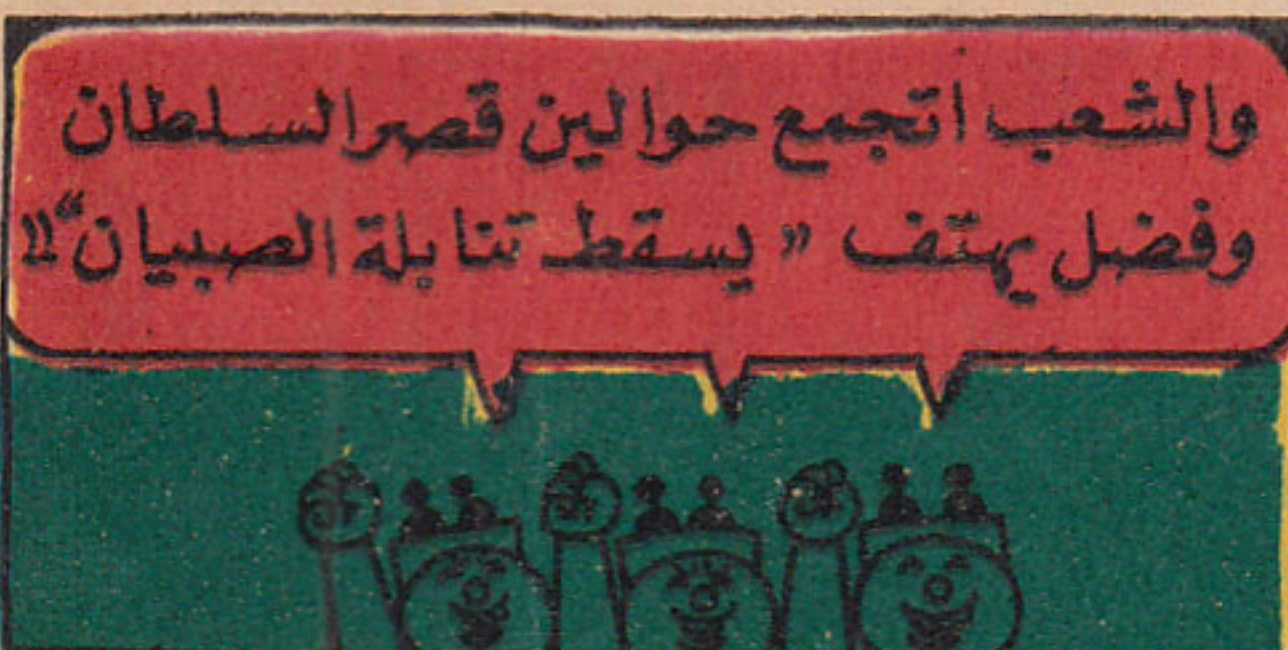 والشعب اتجمع حوالين قصر السلطان
وفضل يهتف « يسقط تنابلة الصبيان“!!